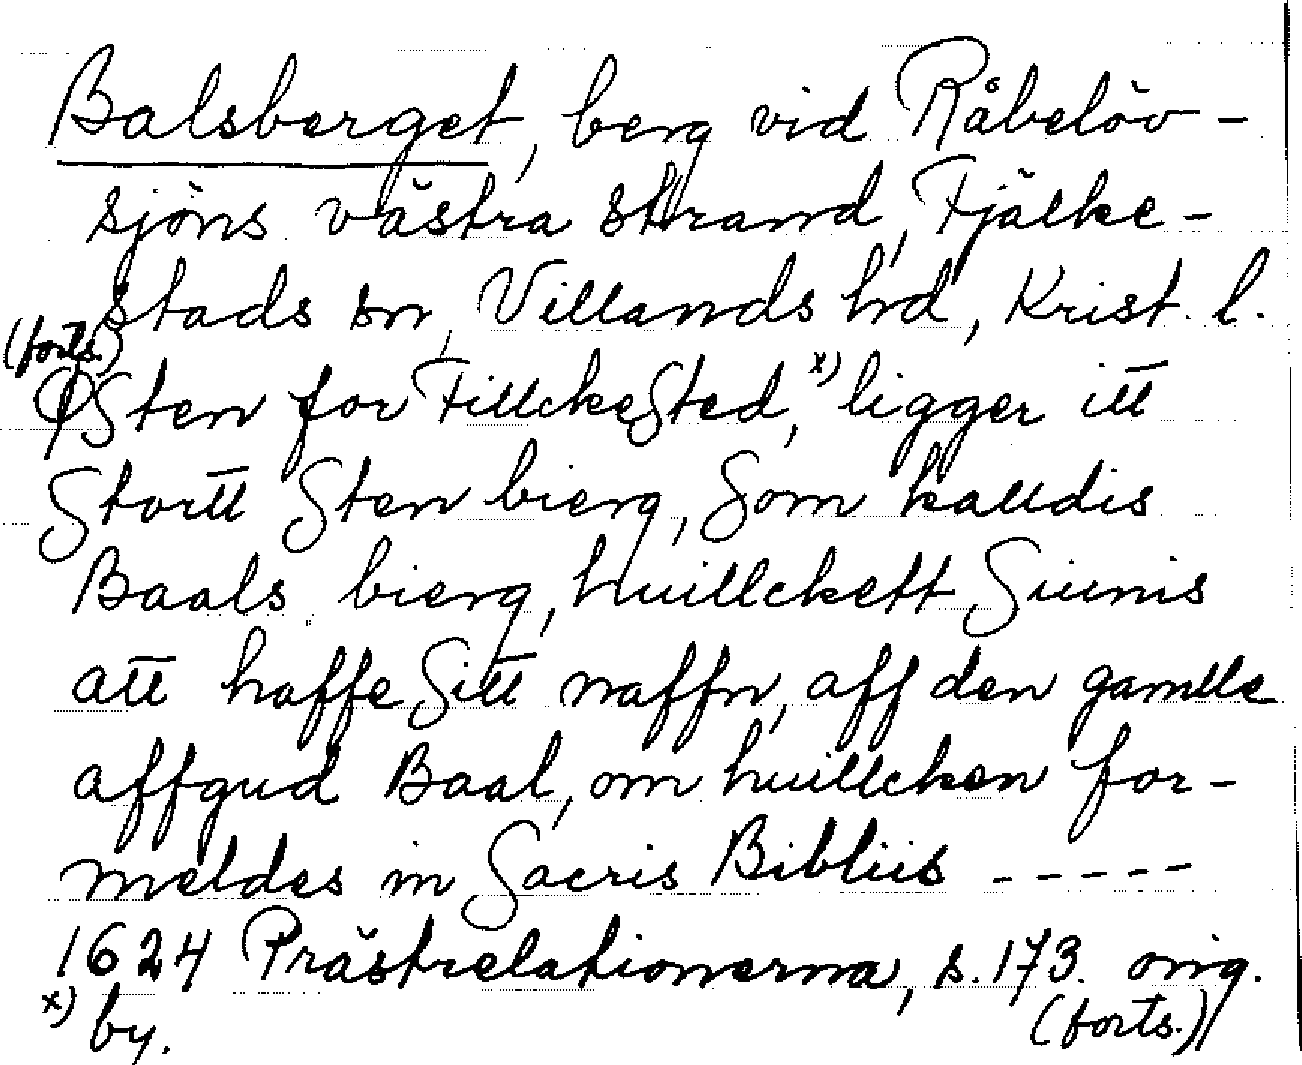 Balsberget, berg vid Råbelöv-
sjöns västra strand, Fjälke-
stads sn, Villands hd, Krist. l.
(forts.)
ØSten for FillckeSted,x) ligger itt
Stortt Sten bierg, Som kalldis
Baals bierg, huillckett Siunis
att haffe Sitt naffn, aff den gamlle
affgud Baal, om huillcken for-
meldes in Sacris Bibliis -----
1624 Prästrelationerna, s. 173. orig.
x) by.
(forts.)